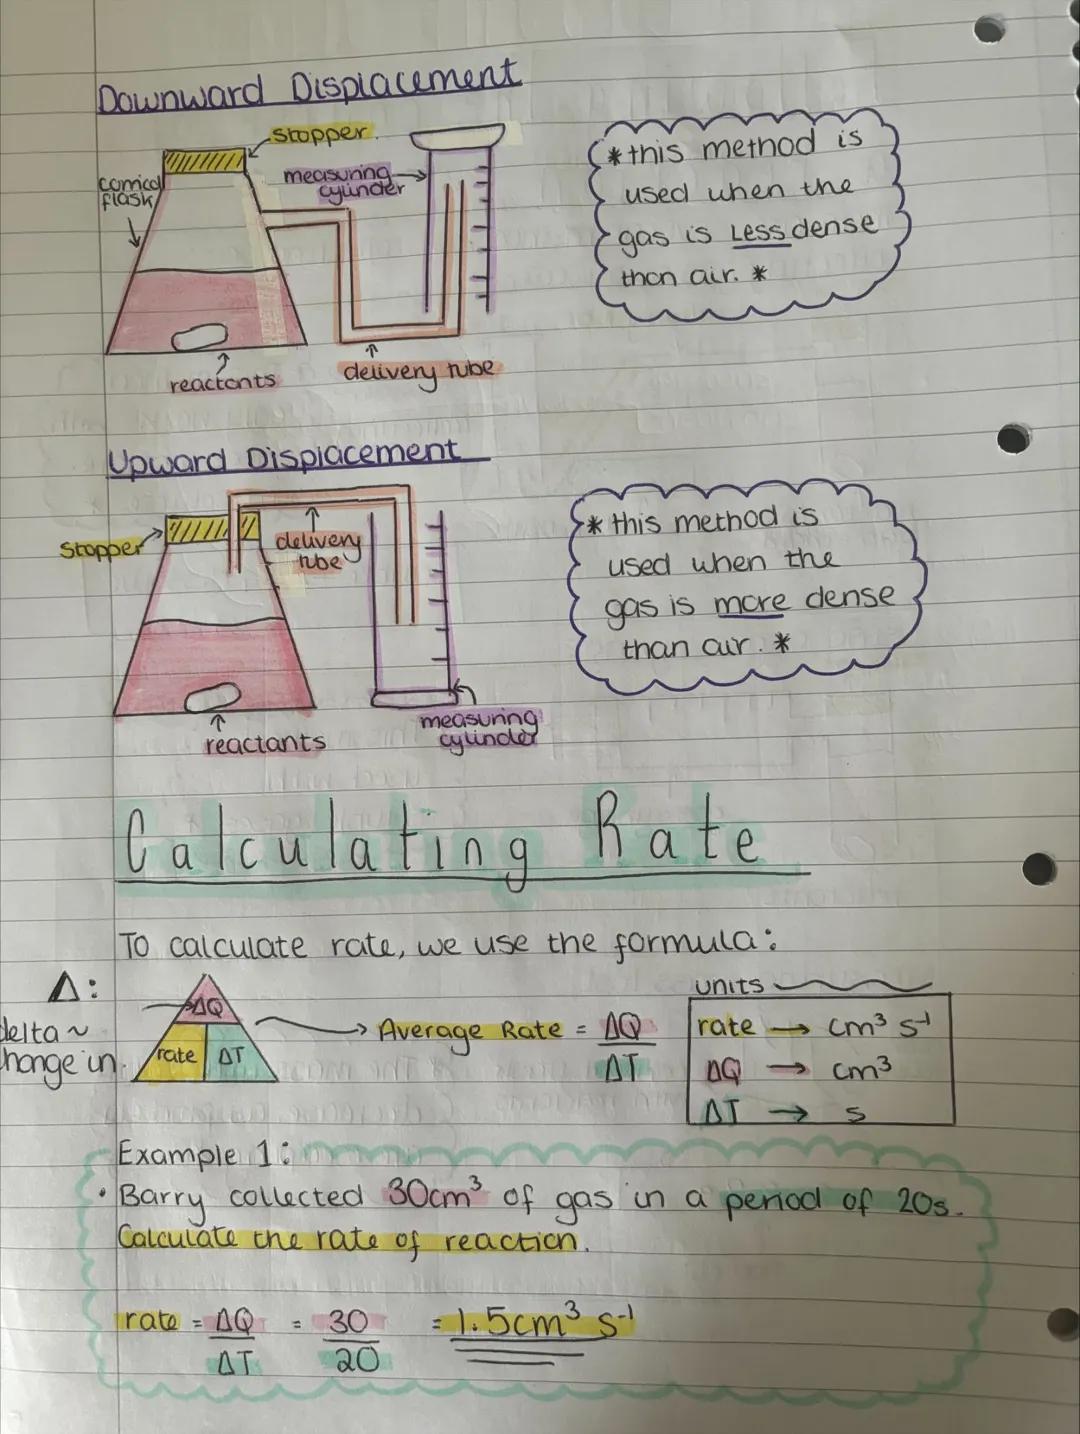 Downward Displacement
stopper.
conical
flask
measuring
cylinder
reactants
delivery tube
*this method is
used when the
gas is LESS dense
than air. *
Upward Displacement
Stopper
delivery
tube
reactants
measuring
cylinder
* this method is
used when the
gas is more dense
than air. *
Calculating Rate
To calculate rate, we use the formula:
Δ:
delta ~
change in.
ΔQ
rate ΔT
Average Rate = ΔQ
ΔT
units
rate → cm³ s⁻¹
ΔQ → cm³
ΔT → s
Example 1:
• Barry collected 30cm³ of gas in a period of 20s.
Calculate the rate of reaction.
rate = ΔQ = 30 = 1.5cm³ s⁻¹
ΔT 20